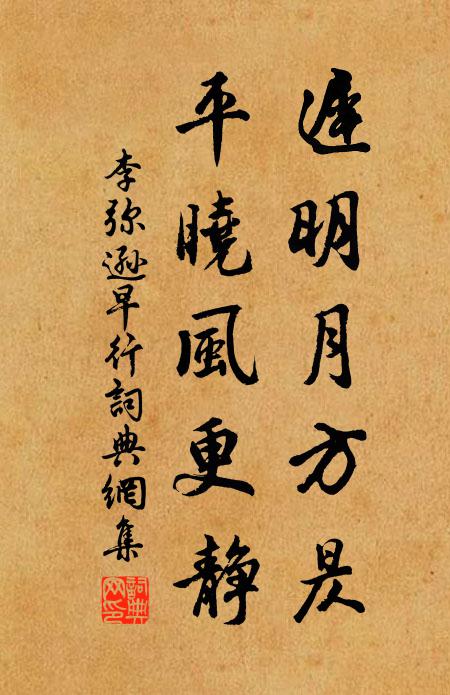 遲明月方昃
平曉風更静
李弥遜早行詞典網集
詞典
网印